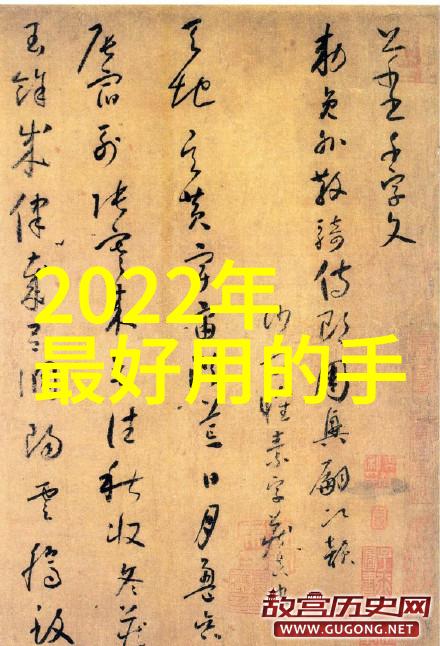 千字文
勅員外散騎侍郎周興嗣次韻
沙門懷素字藏真書
天地玄黃宇宙洪荒日月盈昃
辰宿列張寒來暑往秋收冬藏
閏餘成律歲呂調陽雲騰致
2022年
最好用的手
故宫历史网
WWW.GUGONG.NET